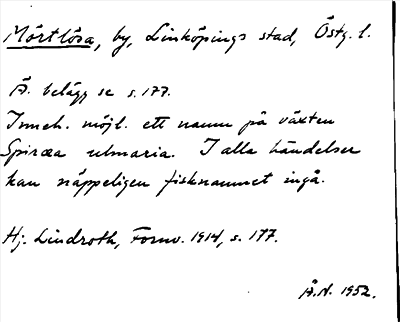 Mörtlösa, by, Linköpings stad, Östg. l.
Ä. belägg se s. 177.
Inneh. möjl. ett namn på växten
Spiræa ulmaria. I alla händelser
kan näppeligen fisknamnet ingå.
Hj. Lindroth, Fornv. 1914, s. 177.
Å.N. 1952.